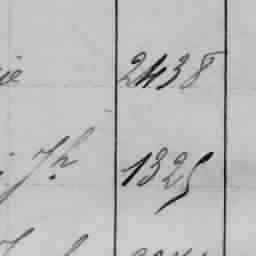 ie 2438
Jh 1325